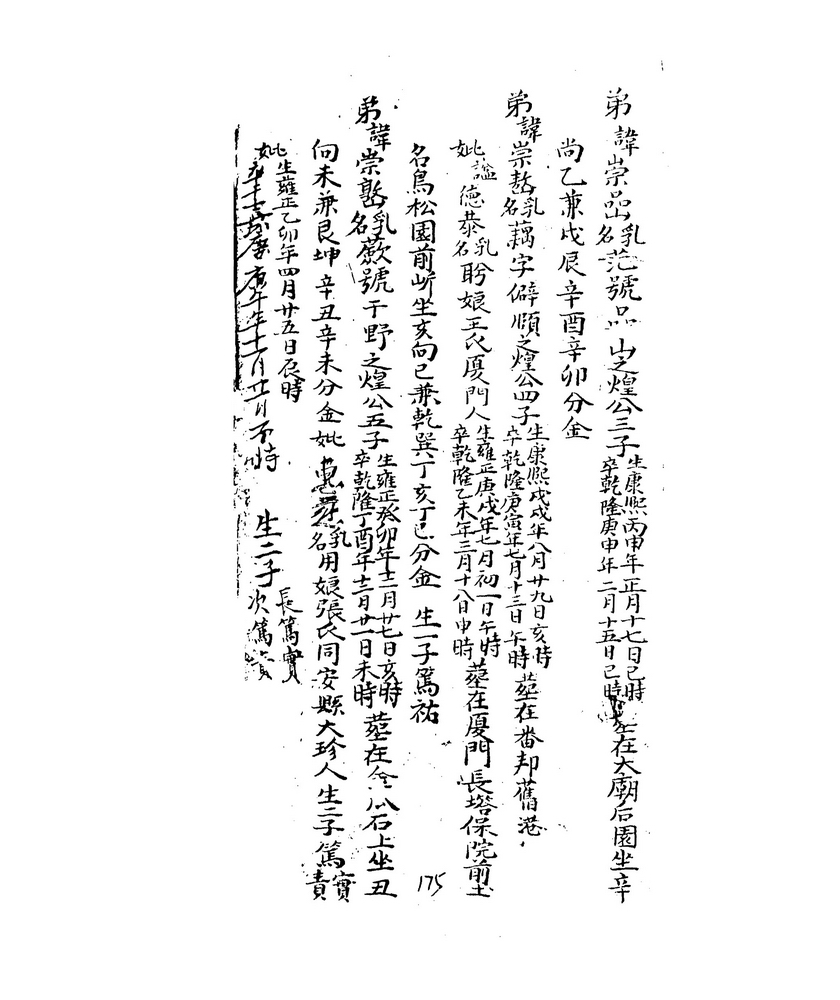 弟諱崇嵒乳名范號品山之煌公三子生康熙丙申年正月十七日巳時卒乾隆庚申年二月十五日巳時塟在大廟后園坐辛
尚乙兼戍辰辛酉辛卯分金
弟諱崇嶅乳名藕字僻順之煌公四子生康熙戊戌年八月廿九日亥時卒乾隆庚寅年七月十三日午時塟在番邦舊港
妣諡德恭乳名聆娘王氏厦門人生雍正庚戌年七月初一日午時卒乾隆乙未年三月十八日申時塟在厦門長塔保院前土
名鳥松園前坐亥向巳兼乾巽丁亥丁巳分金 生一子篤祐
弟諱崇乳名蕨號于野之煌公五子生雍正癸卯年十二月廿七日亥時卒乾隆丁酉年十二月廿一日未時塟在金瓜石上坐丑
向未兼艮坤辛丑辛未分金妣惠乳名用娘張氏同安縣大珍人生二子篤實責
妣生雍正乙卯年四月廿五日辰時卒嘉慶庚午年十一月廿日不時 生二子長篤實次篤責
175